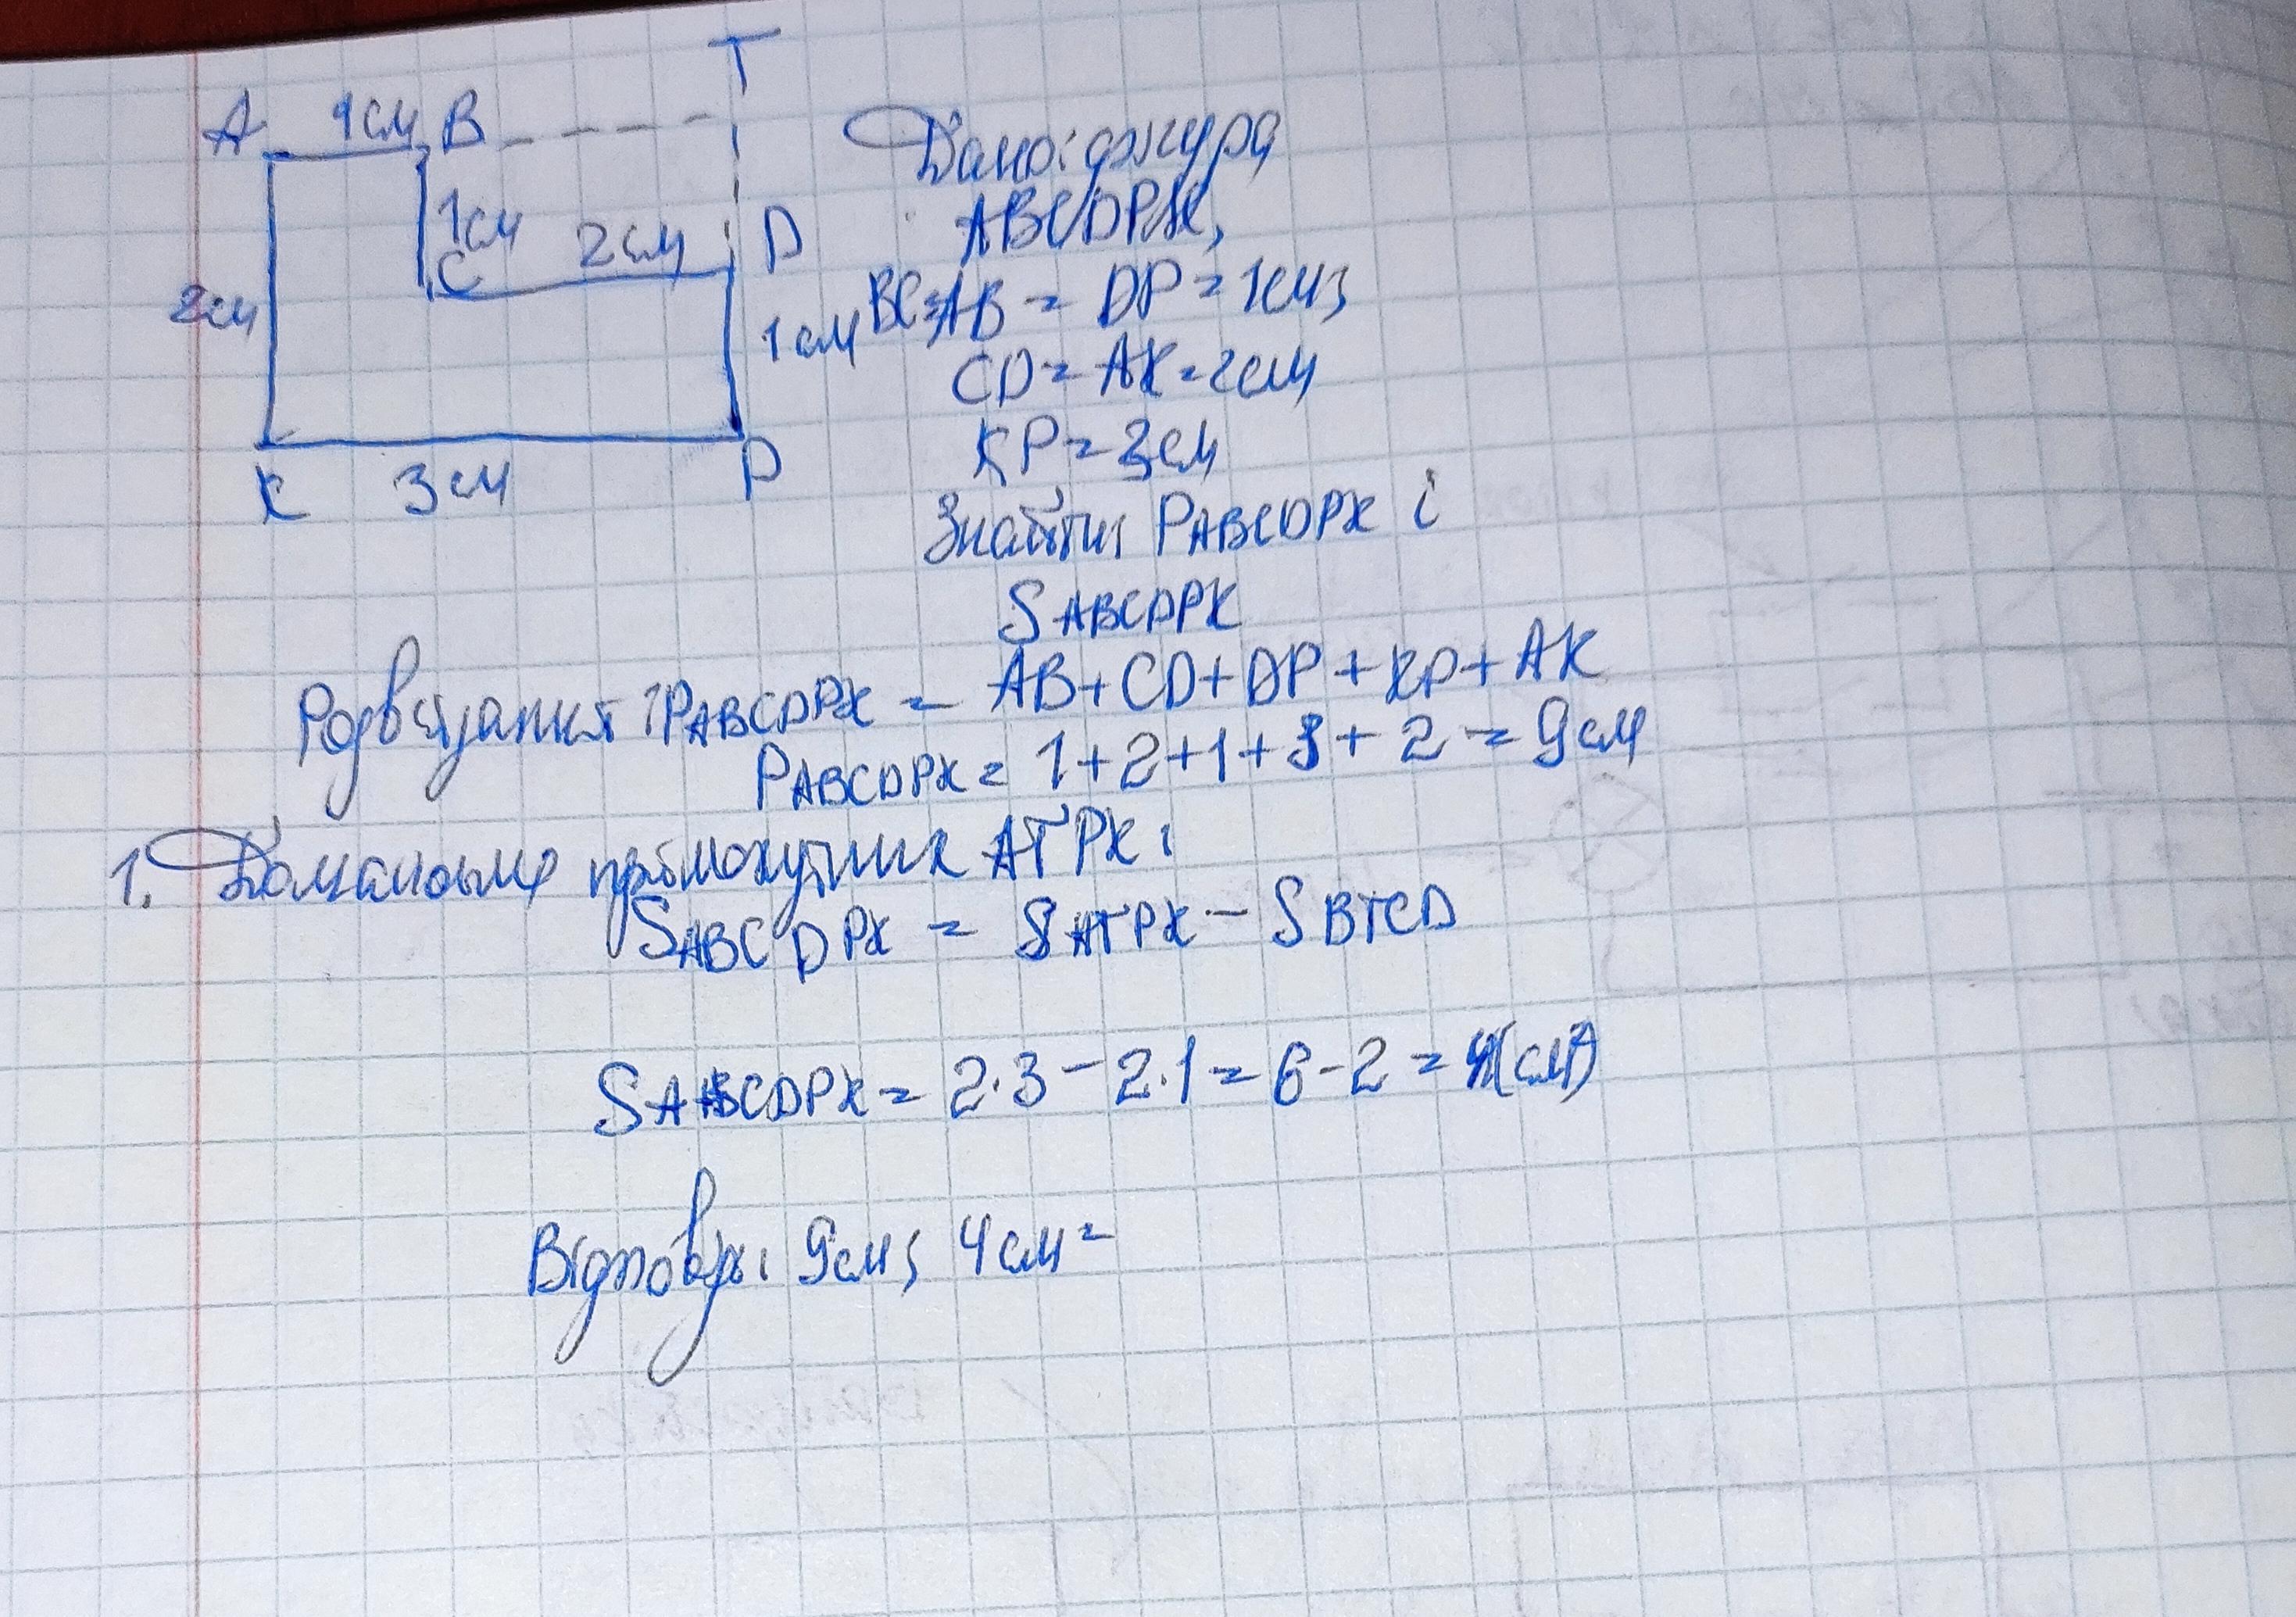 T
A 1см B
1см
C 2см D
2см
1см
K 3см P
Дано: фігура
ABCDPK,
BC=AB = DP = 1см;
CD = AK = 2см
KP = 3см
Знайти PABCDPK і
SABCDPK
Розв'язання: PABCDPK = AB+CD+DP+KP+AK
PABCDPK = 1+2+1+3+2 = 9см
1. Домалюємо прямокутник ATPK:
SABCDPK = SATPK - SBTCD
SABCDPK = 2·3 - 2·1 = 6-2 = 4(см²)
Відповідь: 9см; 4см²